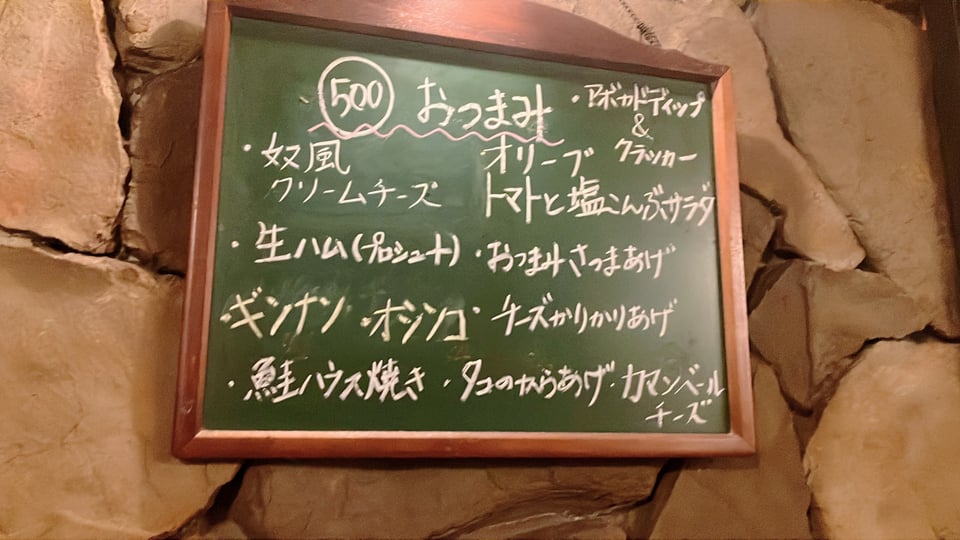 500 おつまみ
・アボカドディップ
&
クラッカー
・奴風
クリームチーズ
オリーブ
トマトと塩こんぶサラダ
・生ハム(プロシュート)
・おつまみさつまあげ
・ギンナン
・オシンコ
・チーズかりかりあげ
・鮭ハラス焼き
・タコのからあげ
・カマンベール
チーズ